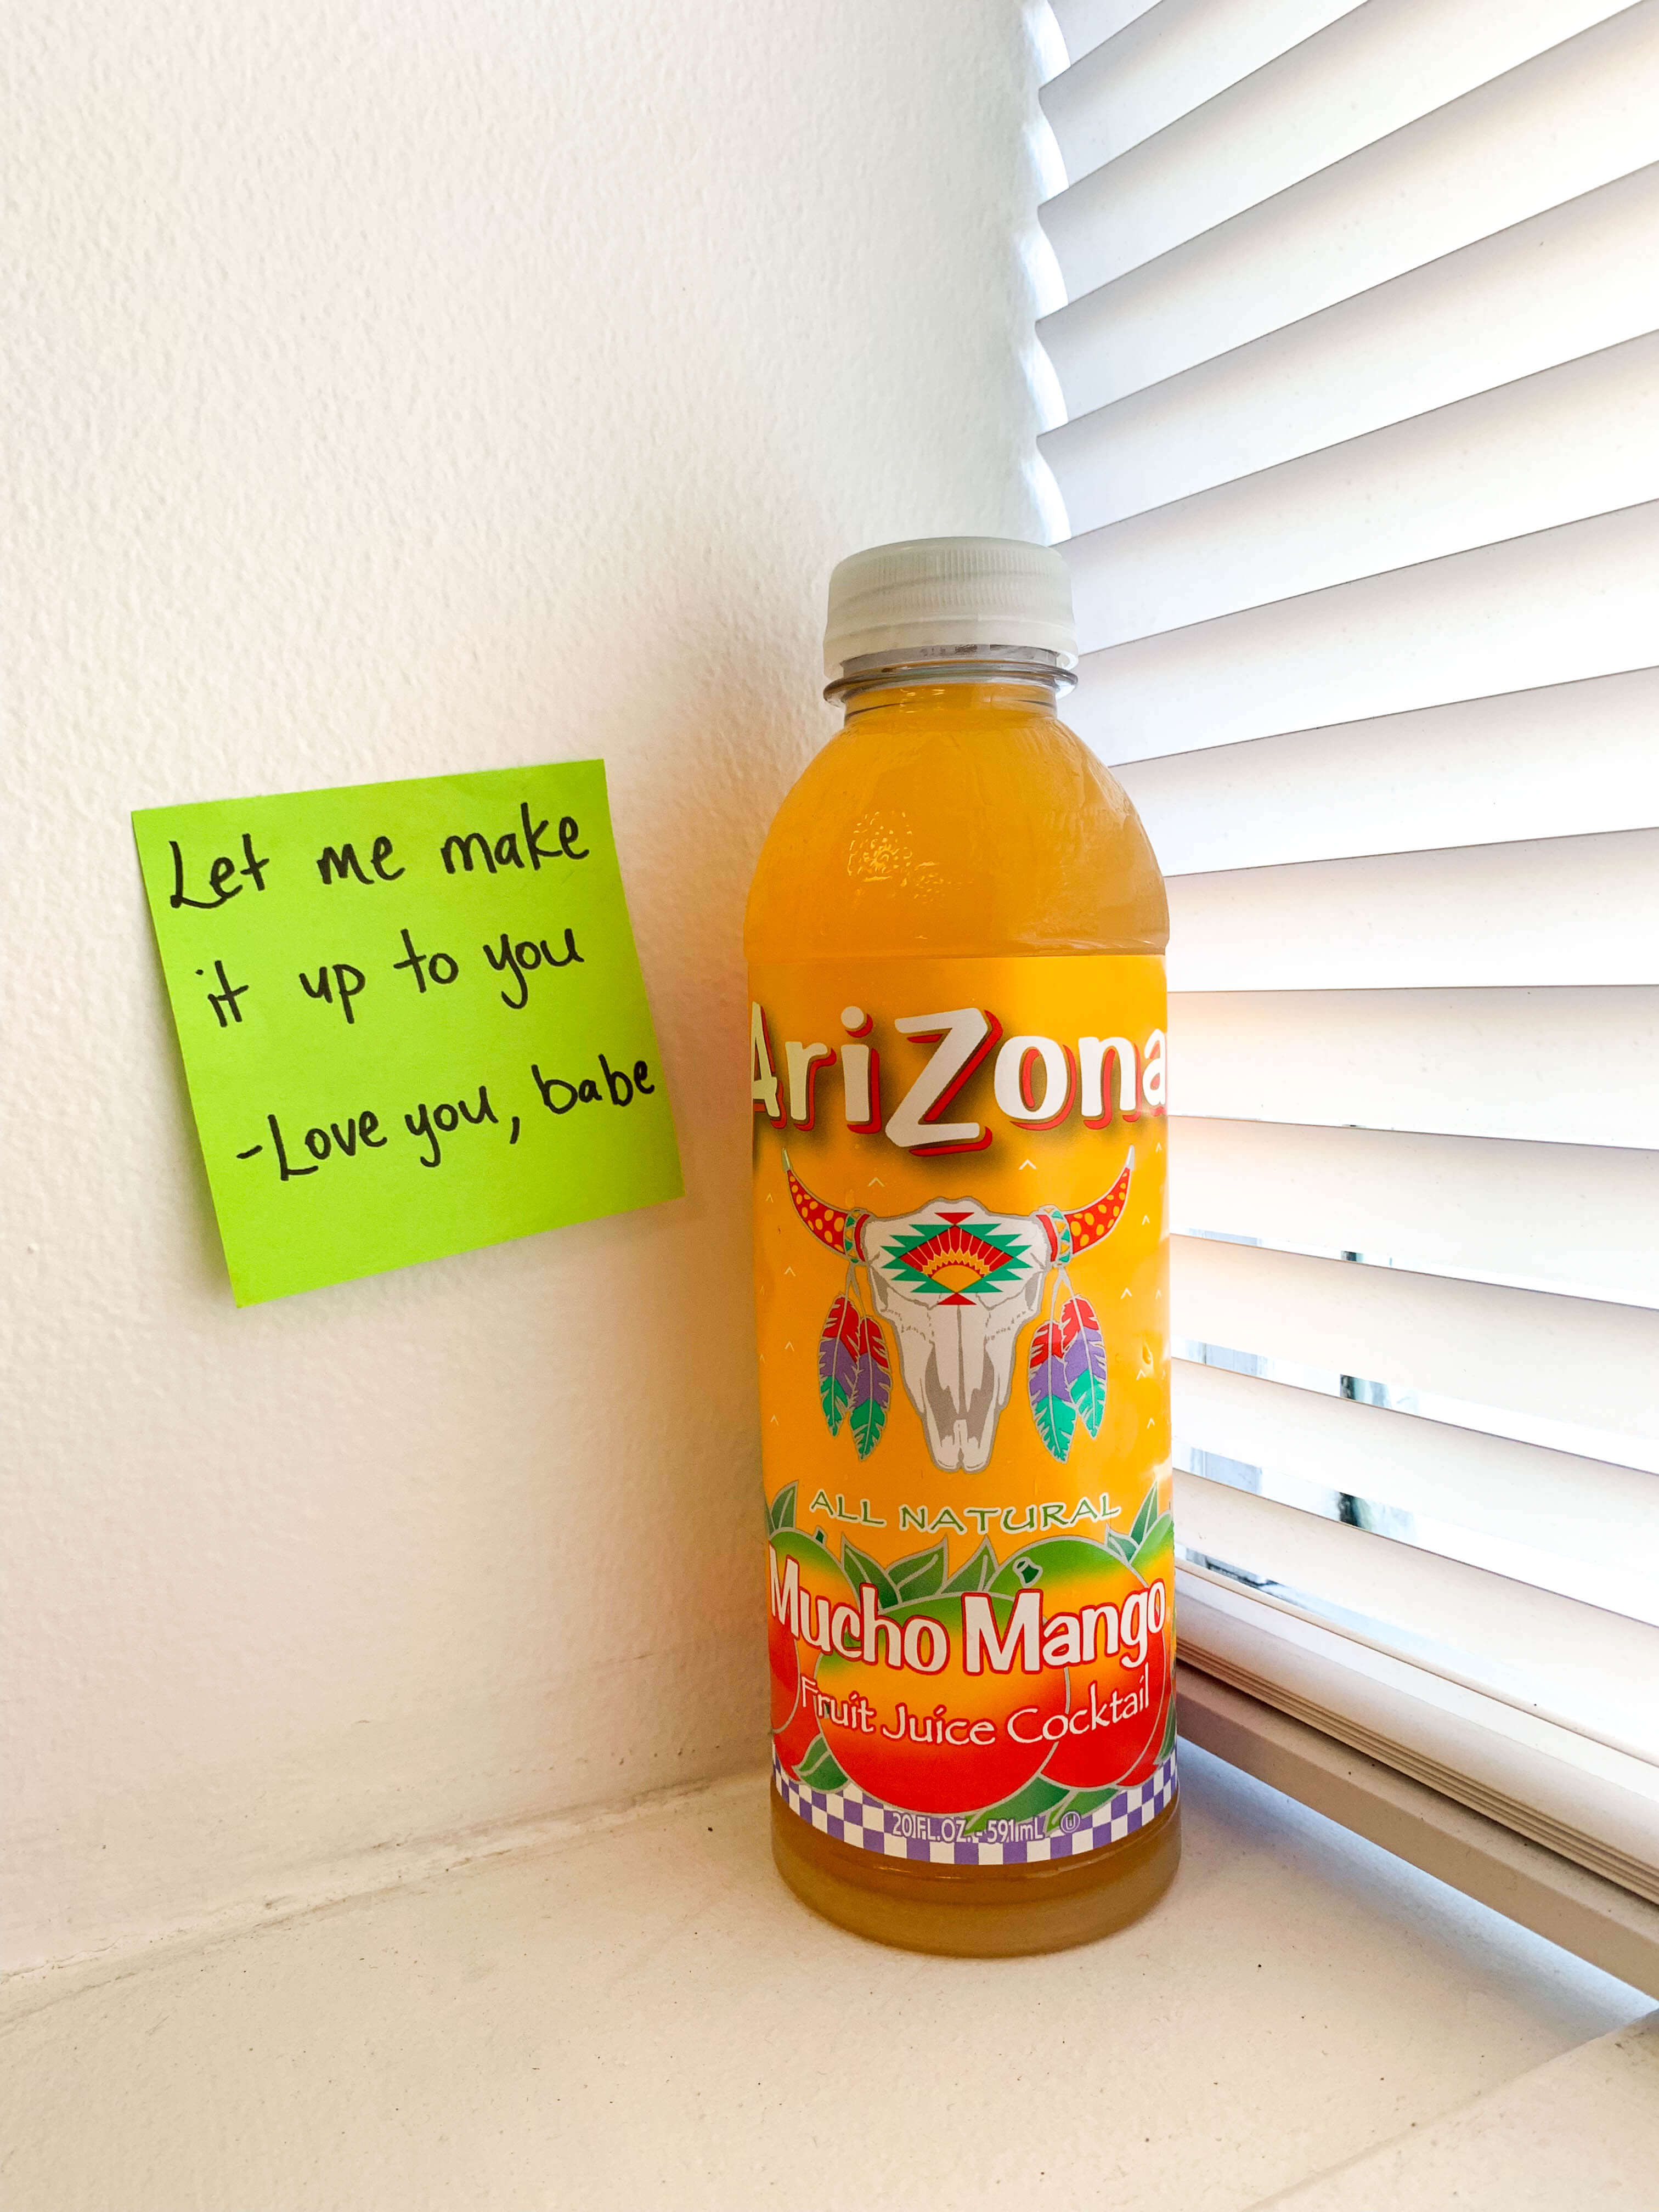 Let me make
it up to you
-Love you, babe
AriZona
ALL NATURAL
Mucho Mango
Fruit Juice Cocktail
20 FL.OZ. - 591 mL U